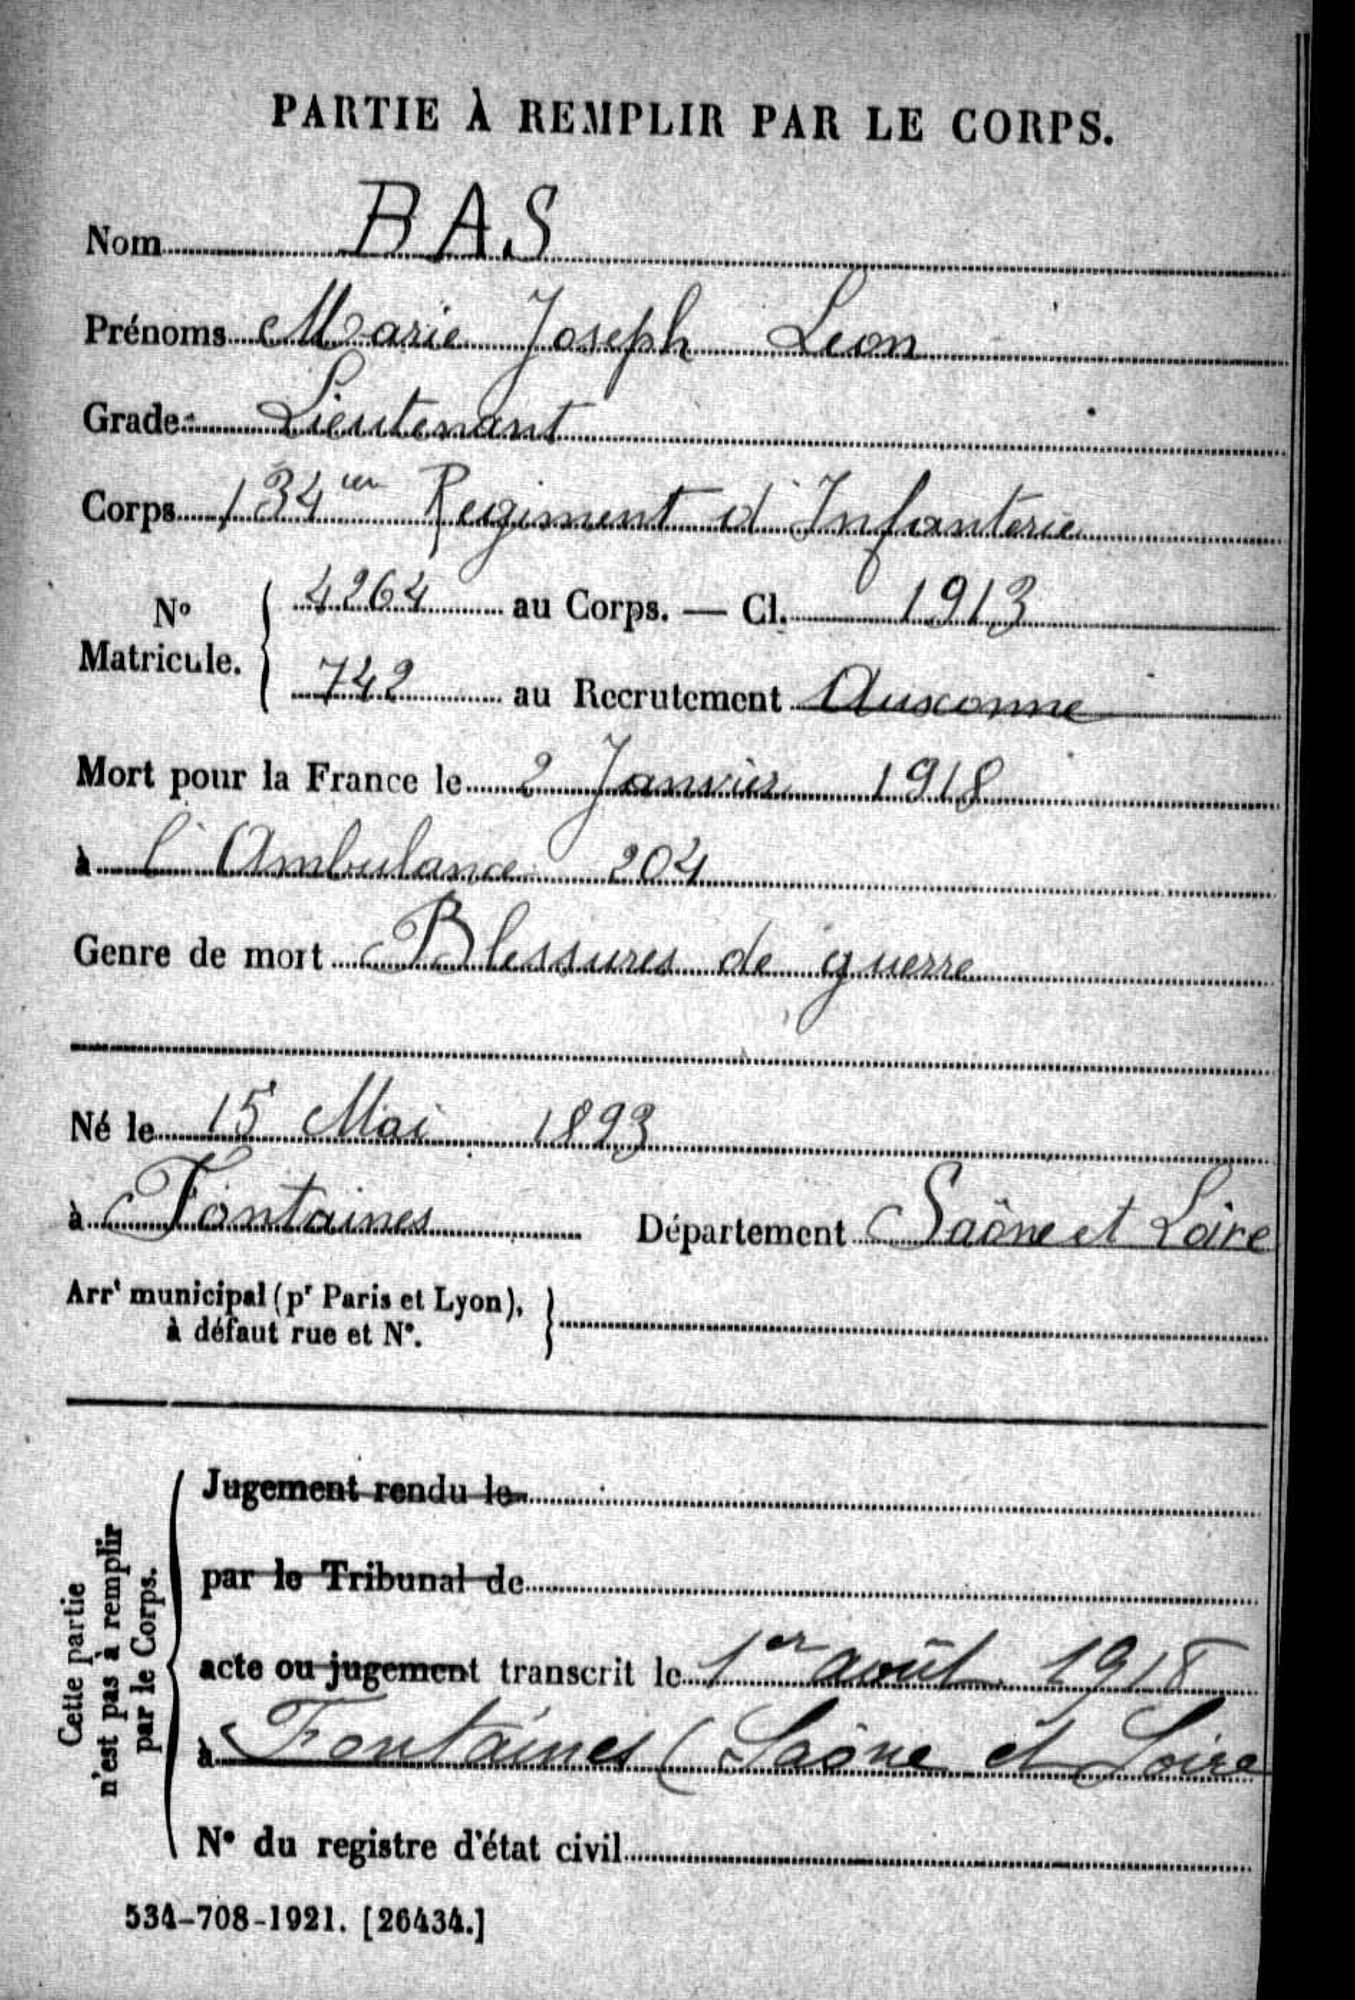 PARTIE À REMPLIR PAR LE CORPS.
Nom BAS
Prénoms Marie Joseph Leon
Grade Lieutenant
Corps 134em Regiment d'Infanterie
No Matricule. 4264 au Corps. — Cl. 1913
742 au Recrutement Auxonne
Mort pour la France le 2 Janvier 1918
à l'Ambulance 204
Genre de mort Blessures de guerre
Né le 15 Mai 1893
à Fontaines Département Saône et Loire
Arrt municipal (pr Paris et Lyon),
à défaut rue et N°.
Cette partie
n'est pas à remplir
par le Corps.
Jugement rendu le
par le Tribunal de
acte ou jugement transcrit le 1er août 1918
à Fontaines (Saône et Loire
N° du registre d'état civil
534-708-1921. [26434.]